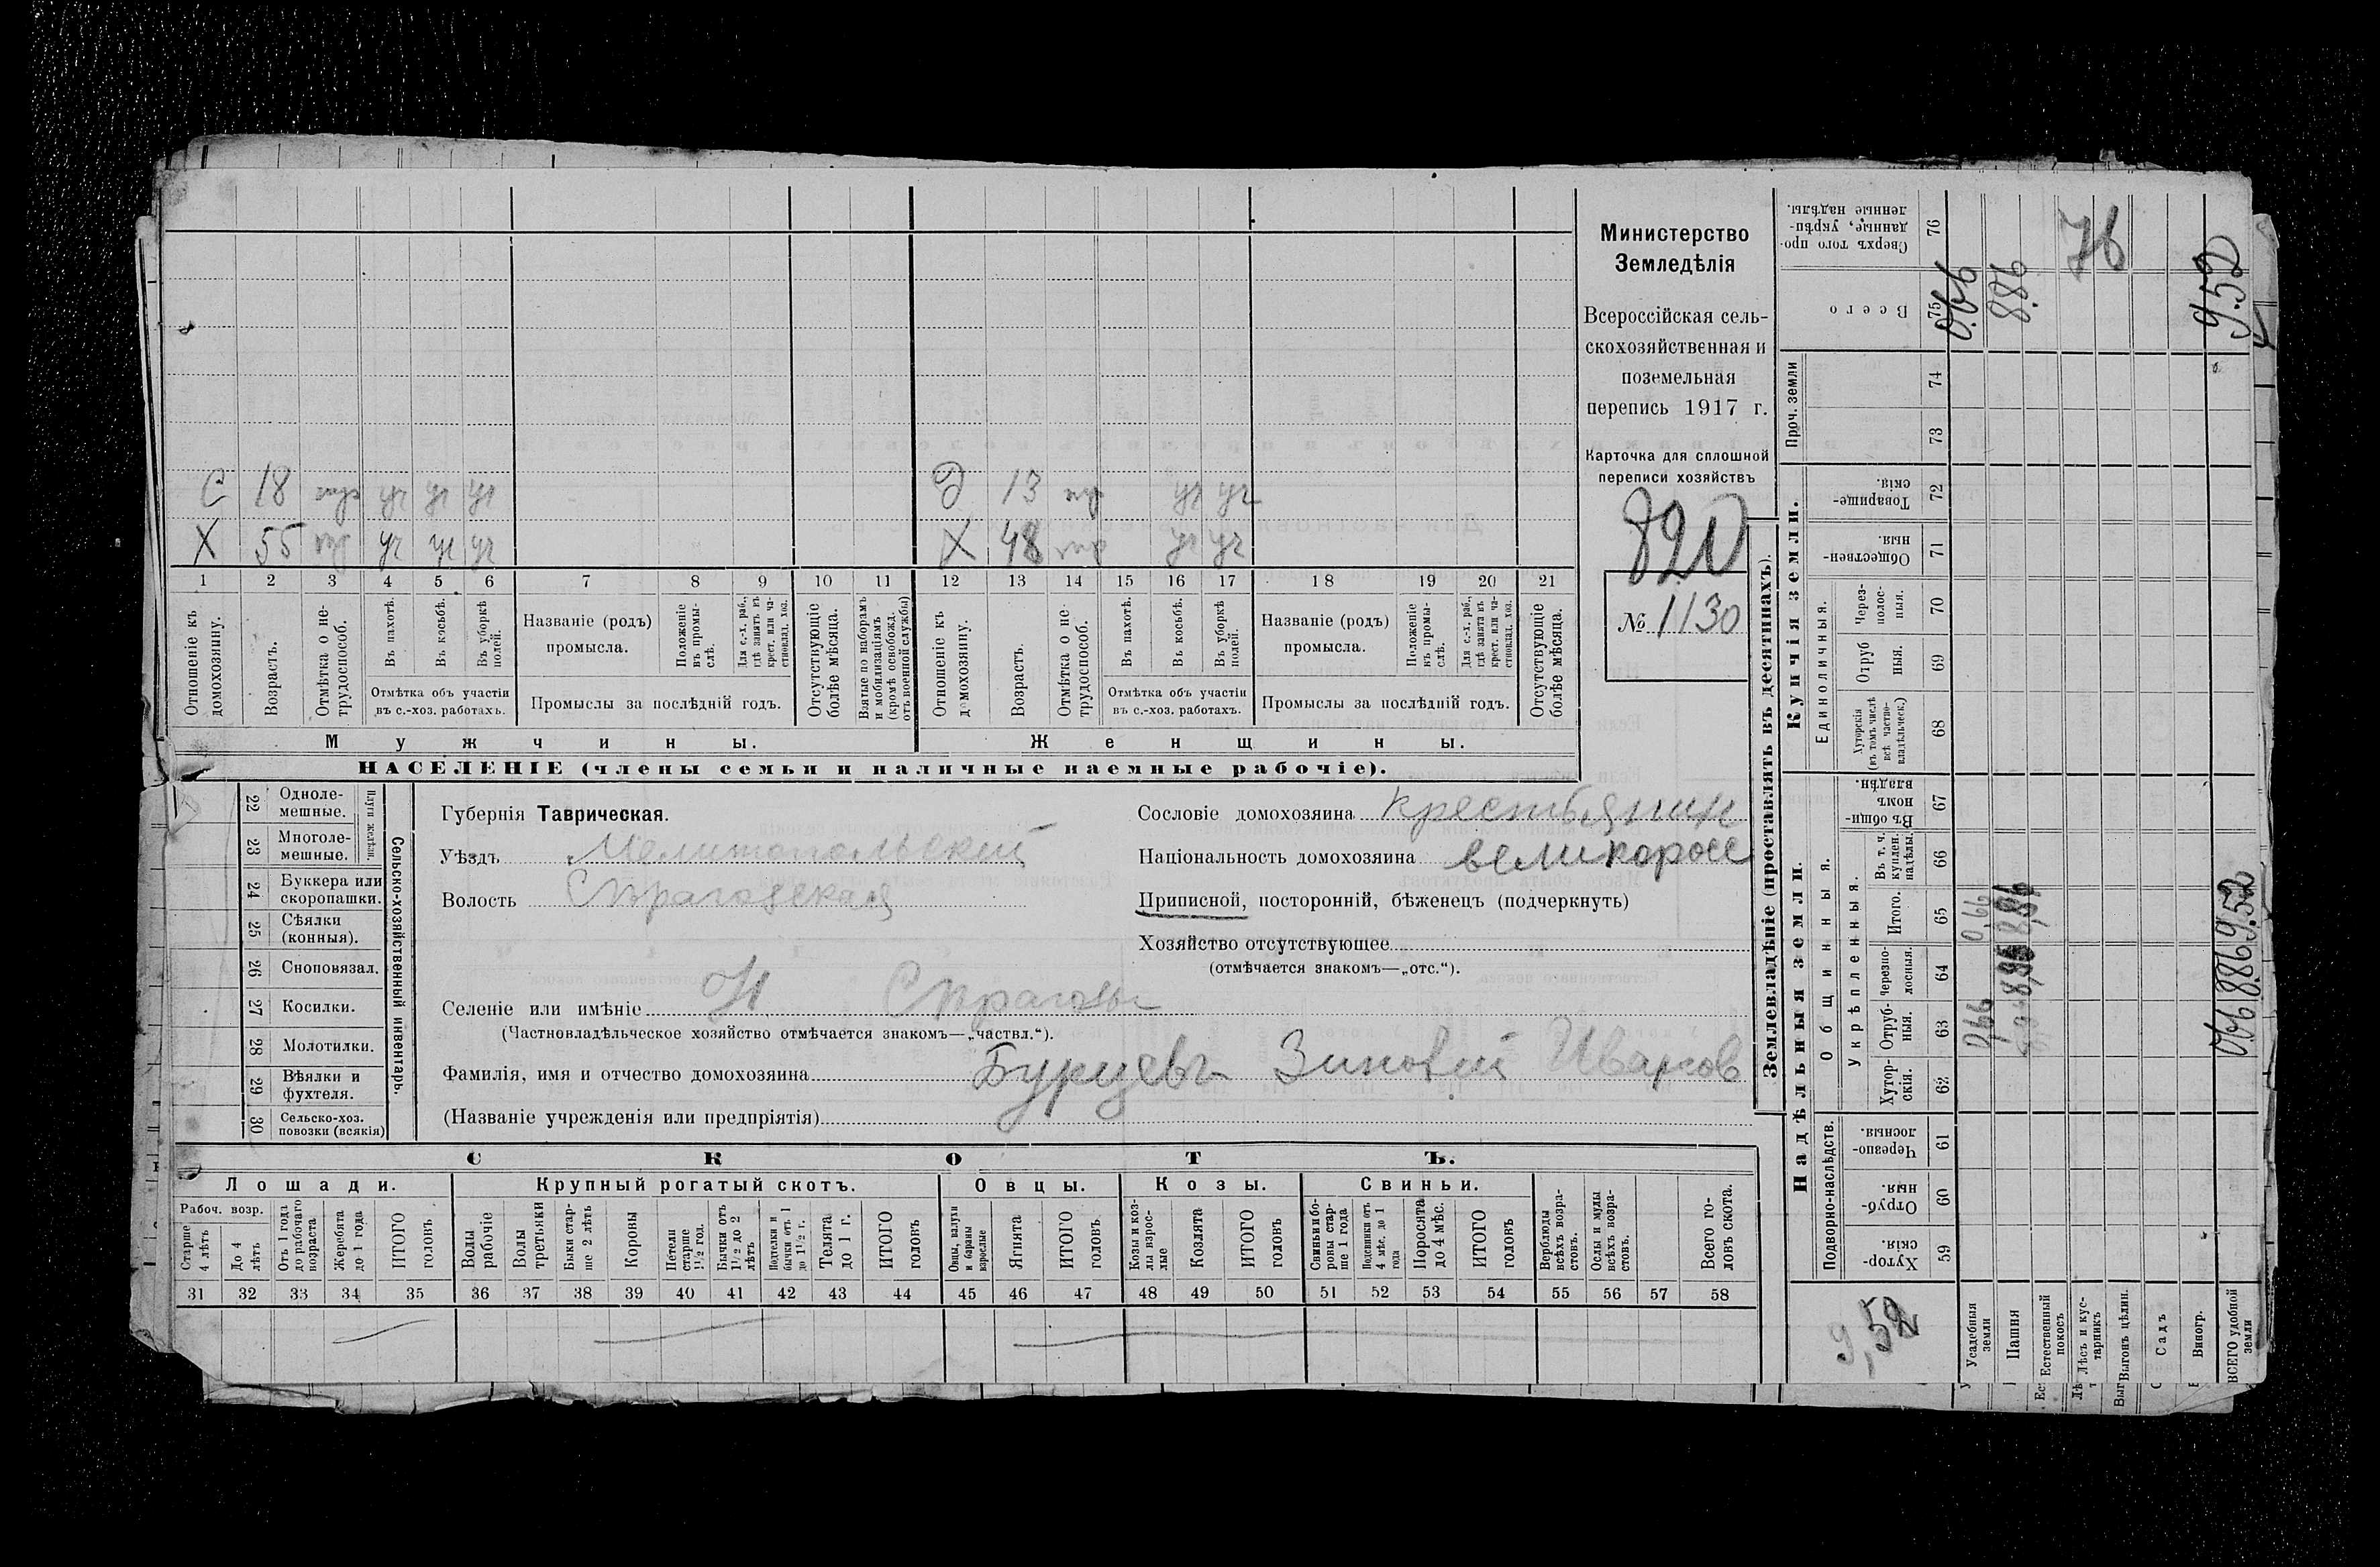 С 18 тр уч уч уч
Д 13 уч уч
Х 55 уч уч уч
Х 48 уч уч
1 2 3 4 5 6 7 8 9 10 11 12 13 14 15 16 17 18 19 20 21
Отношеніе къ домохозяину.
Возрастъ.
Отмѣтка о не-трудоспособ.
Въ пахотѣ.
Въ косьбѣ.
Въ уборкѣ полей.
Отмѣтка объ участіи
въ с.-хоз. работахъ.
Названіе (родъ)
промысла.
Положеніе въ промы-слѣ.
Для с.-х. раб., гдѣ занятъ въ крест. или ча-стновлад. хоз.
Промыслы за послѣдній годъ.
Отсутствующіе болѣе мѣсяца.
Взятые по наборамъ и мобилизаціямъ (кромѣ освобожд. отъ военной службы)
Отношеніе къ домохозяину.
Возрастъ.
Отмѣтка о не-трудоспособ.
Въ пахотѣ.
Въ косьбѣ.
Въ уборкѣ полей.
Отмѣтка объ участіи
въ с.-хоз. работахъ.
Названіе (родъ)
промысла.
Положеніе въ промы-слѣ.
Для с.-х. раб., гдѣ занята въ крест. или ча-стновлад. хоз.
Промыслы за послѣдній годъ.
Отсутствующіе болѣе мѣсяца.
Мужчины.
Женщины.
НАСЕЛЕНІЕ (члены семьи и наличные наемные рабочіе).
Министерство
Земледѣлія
Всероссійская сель-
скохозяйственная и
поземельная
перепись 1917 г.
Карточка для сплошной
переписи хозяйствъ
820
№ 1130
22 Одноле-мешные.
23 Многоле-мешные.
Плуги желѣзн.
24 Буккера или скоропашки.
25 Сѣялки (конныя).
26 Сноповязал.
27 Косилки.
28 Молотилки.
29 Вѣялки и фухтеля.
30 Сельско-хоз. повозки (всякія)
Сельско-хозяйственный инвентарь.
Губернія Таврическая.
Уѣздъ Мелитопольский
Волость
Селеніе или имѣніе
(Частновладѣльческое хозяйство отмѣчается знакомъ—„частвл.“).
Фамилія, имя и отчество домохозяина Бурцевъ Зиновий Иванов
(Названіе учрежденія или предпріятія)
Сословіе домохозяина крестьянин
Національность домохозяина великоросс
Приписной, посторонній, бѣженецъ (подчеркнуть)
Хозяйство отсутствующее
(отмѣчается знакомъ—„отс.“).
СКОТЪ.
Лошади.
Крупный рогатый скотъ.
Овцы.
Козы.
Свиньи.
Рабоч. возр.
Старше 4 лѣтъ
До 4 лѣтъ
Отъ 1 года до рабочаго возраста
Жеребята до 1 года
ИТОГО головъ
Волы рабочіе
Волы третьяки
Быки стар-ше 2 лѣтъ
Коровы
Нетели старше 1½ год.
Бычки отъ 1½ до 2 лѣтъ
Подтелки и бычки отъ 1 до 1½ г.
Телята до 1 г.
ИТОГО головъ
Овцы, валухи и бараны взрослые
Ягнята
ИТОГО головъ
Козы и коз-лы взрос-лые
Козлята
ИТОГО головъ
Свиньи и бо-ровы стар-ше 1 года
Подсвинки отъ 4 мѣс. до 1 года
Поросята до 4 мѣс.
ИТОГО головъ
Верблюды всѣхъ возра-стовъ.
Ослы и мулы всѣхъ возра-стовъ.
Всего го-ловъ скота.
31 32 33 34 35 36 37 38 39 40 41 42 43 44 45 46 47 48 49 50 51 52 53 54 55 56 57 58
Землевладѣніе (проставлять въ десятинахъ).
Купчія земли.
Надѣльныя земли.
Сверхъ того про-данные, укрѣп-ленные надѣлы. 76
Всего 75
0,66
8.86
76
9.52
Проч. земли 74 73
Товарище-скія. 72
Обществен-ныя. 71
Единоличныя.
Через-полос-ныя. 70
Отруб-ныя. 69
Хуторскія (въ томъ числѣ всѣ частно-владѣльческ.) 68
Общинныя.
Въ общин-номъ владѣн. 67
Укрѣпленныя.
Въ т. ч. куплен. надѣлы. 66
Итого. 65
0,66 8,86 9.52
Черезпо-лосныя. 64
8.86
Отруб-ныя. 63
0,66
0,66
Хутор-скія. 62
Подворно-наслѣдств.
Черезпо-лосныя. 61
Отруб-ныя. 60
Хутор-скія. 59
9,52
Усадебныя земли
Пашня
Естественный покосъ
Лѣсъ и кус-тарникъ
Выгонъ цѣлин.
Садъ
Виногр.
ВСЕГО удобной земли